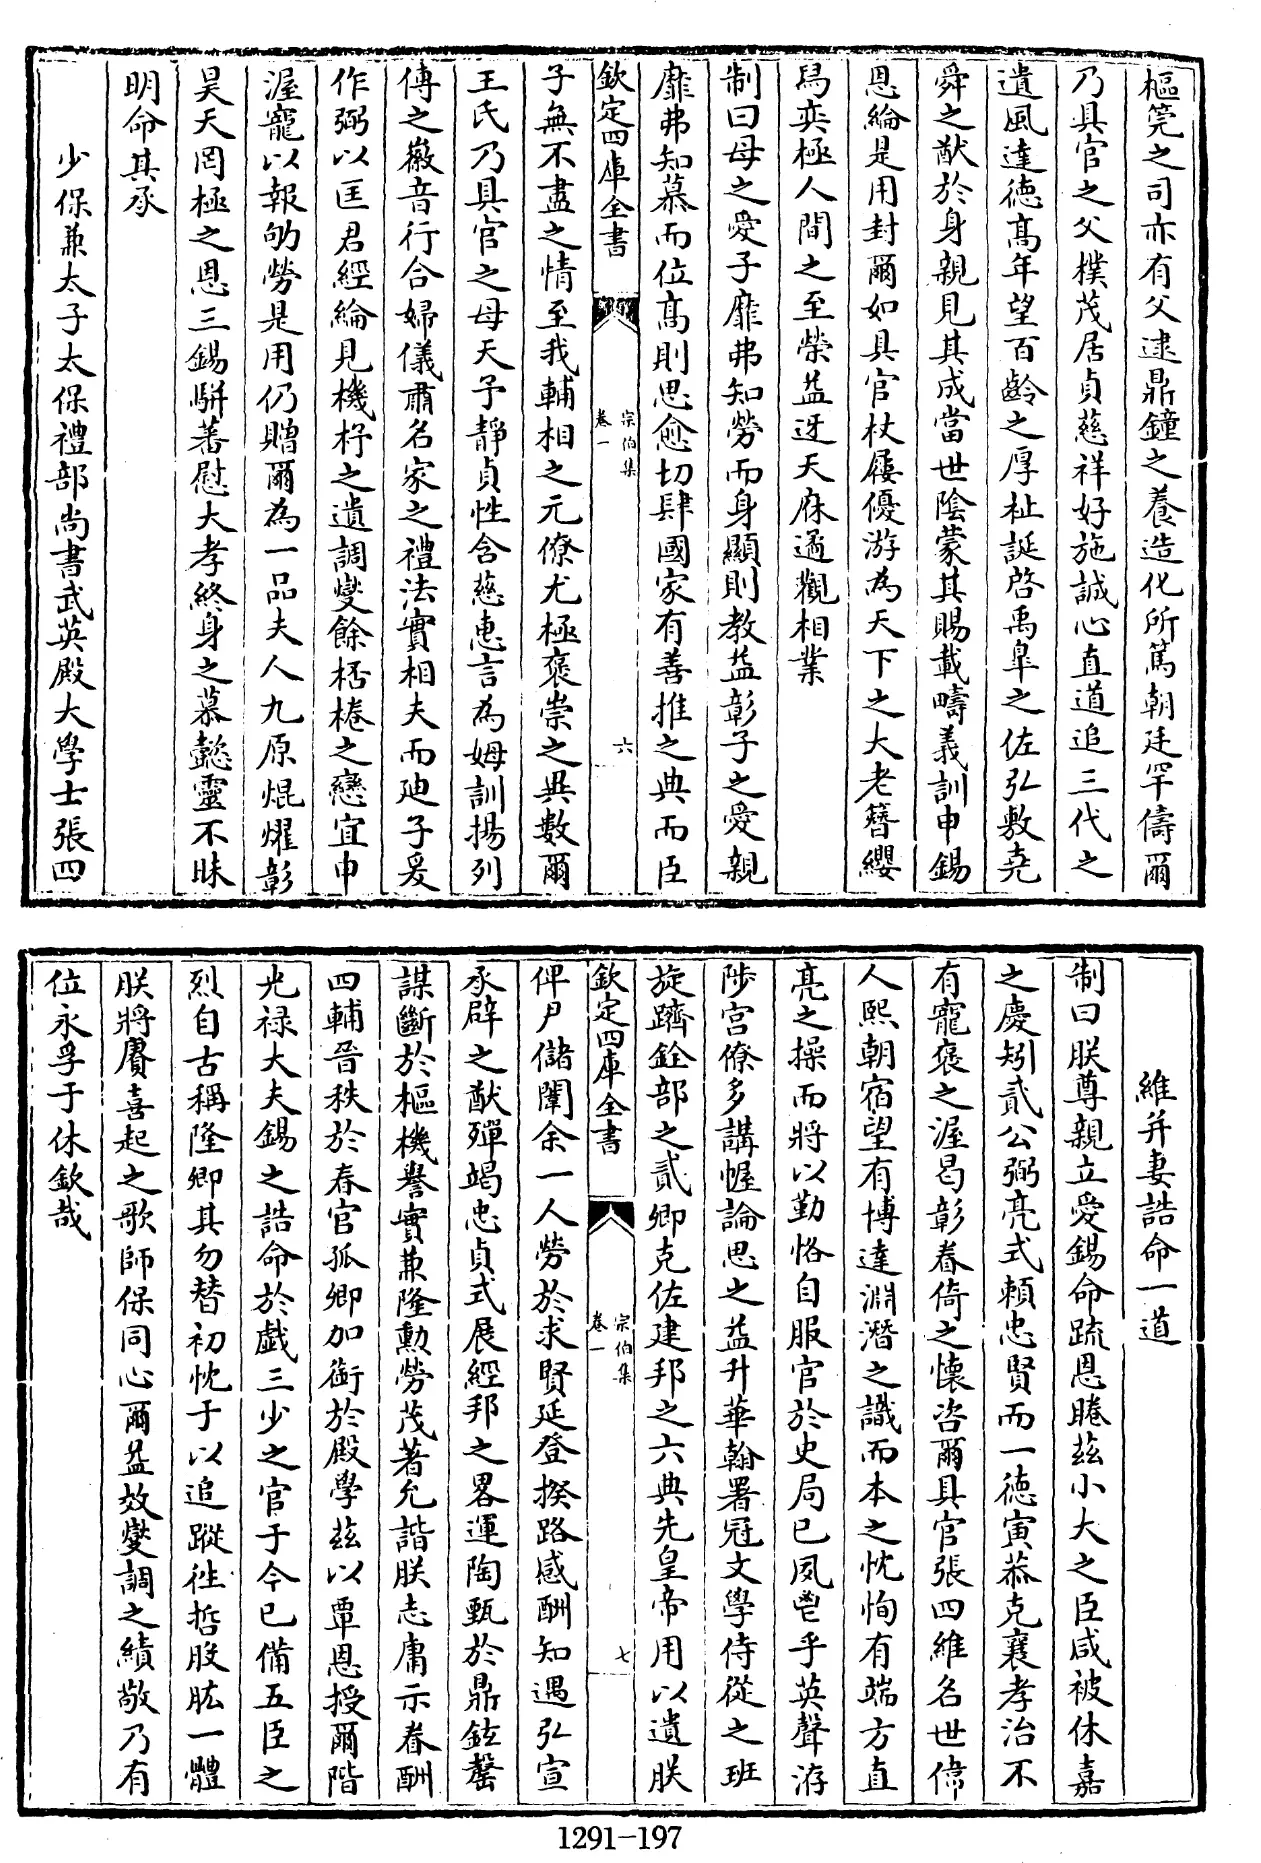 樞筦之司亦有父逮鼎鐘之養造化所篤朝廷罕儔爾
乃具官之父樸茂居貞慈祥好施誠心直道追三代之
遺風達德髙年望百齡之厚祉誕啓禹臯之佐弘敷堯
舜之猷於身親見其成當世陰蒙其賜載疇義訓申錫
恩綸是用封爾如具官杖屨優游為天下之大老簪纓
舄奕極人間之至榮益迓天庥遹觀相業
制曰母之愛子靡弗知勞而身顯則教益彰子之愛親
靡弗知慕而位髙則思愈切肆國家有善推之典而臣
欽定四庫全書
宗伯集
卷一
六
子無不盡之情至我輔相之元僚尤極褒崇之異數爾
王氏乃具官之母天予靜貞性含慈惠言為姆訓揚列
傳之徽音行合婦儀肅名家之禮法實相夫而廸子爰
作弼以匡君經綸見機杼之遺調燮餘桮棬之戀宜申
渥寵以報劬勞是用仍贈爾為一品夫人九原焜燿彰
昊天罔極之恩三錫駢蕃慰大孝終身之慕懿靈不昧
明命其承
少保兼太子太保禮部尚書武英殿大學士張四
維并妻誥命一道
制曰朕尊親立愛錫命疏恩睠兹小大之臣咸被休嘉
之慶矧貳公弼亮式賴忠賢而一德寅恭克襄孝治不
有寵褒之渥曷彰眷倚之懷咨爾具官張四維名世偉
人熙朝宿望有博達淵潛之識而本之忱恂有端方直
亮之操而將以勤恪自服官於史局已夙鬯乎英聲洊
陟宫僚多講幄論思之益升華翰署冠文學侍從之班
旋躋銓部之貳卿克佐建邦之六典先皇帝用以遺朕
欽定四庫全書
宗伯集
卷一
七
俾尹儲闈余一人勞於求賢延登揆路感酬知遇弘宣
承辟之猷殫竭忠貞式展經邦之畧運陶甄於鼎鉉罄
謀斷於樞機譽實兼隆勳勞茂著允諧朕志庸示眷酬
四輔晉秩於春官孤卿加銜於殿學兹以覃恩授爾階
光禄大夫錫之誥命於戲三少之官于今已備五臣之
烈自古稱隆卿其勿替初忱于以追蹤徃哲股肱一體
朕將賡喜起之歌師保同心爾益效燮調之績敬乃有
位永孚于休欽哉
1291-197